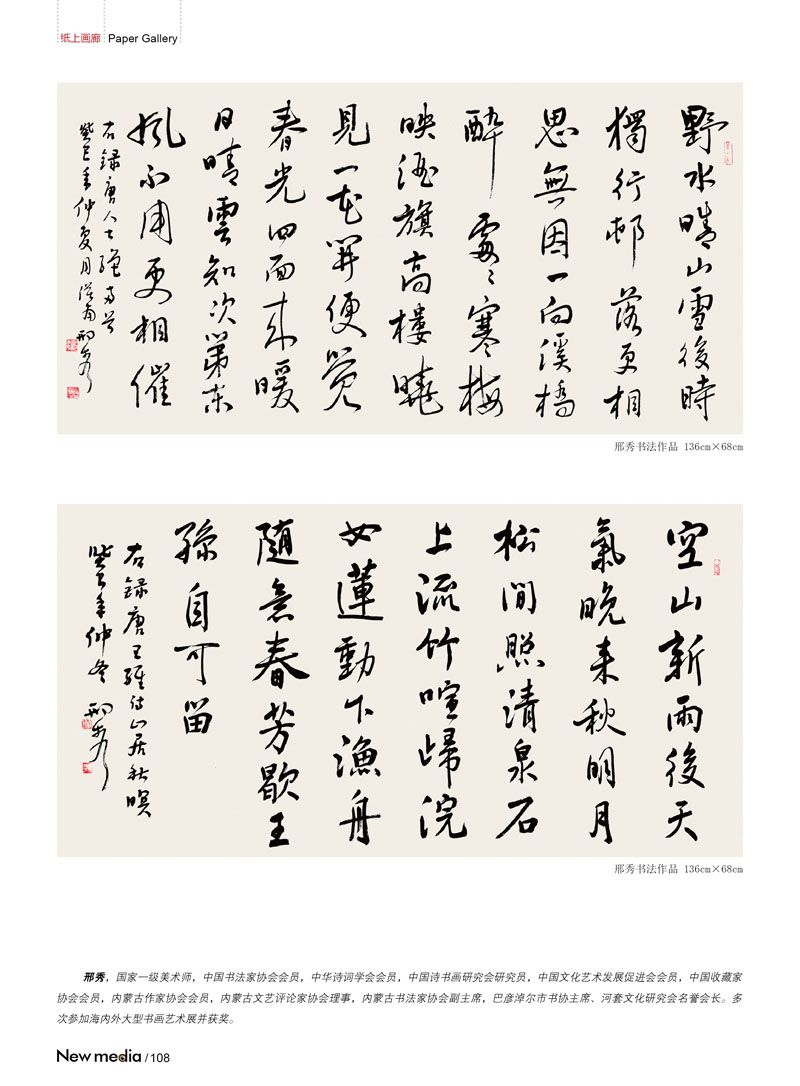 纸上画廊 Paper Gallery
野水晴山雪後時
獨行邨落更相
思無因一向溪橋
醉處〻寒梅
映酒旗高樓曉
見一花開便覺
春光四面来暖
日晴雲知次第東
風不用更相催
右録唐人
癸巳年仲夏月 邢秀
邢秀书法作品 136cm×68cm
空山新雨後天
氣晚来秋明月
松間照清泉石
上流竹喧歸浣
女蓮動下漁舟
随意春芳歇王
孫自可留
右録唐王維诗山居秋暝
癸巳年仲冬 邢秀
邢秀书法作品 136cm×68cm
邢秀，国家一级美术师，中国书法家协会会员，中华诗词学会会员，中国诗书画研究会研究员，中国文化艺术发展促进会会员，中国收藏家
协会会员，内蒙古作家协会会员，内蒙古文艺评论家协会理事，内蒙古书法家协会副主席，巴彦淖尔市书协主席、河套文化研究会名誉会长。多
次参加海内外大型书画艺术展并获奖。
New media / 108